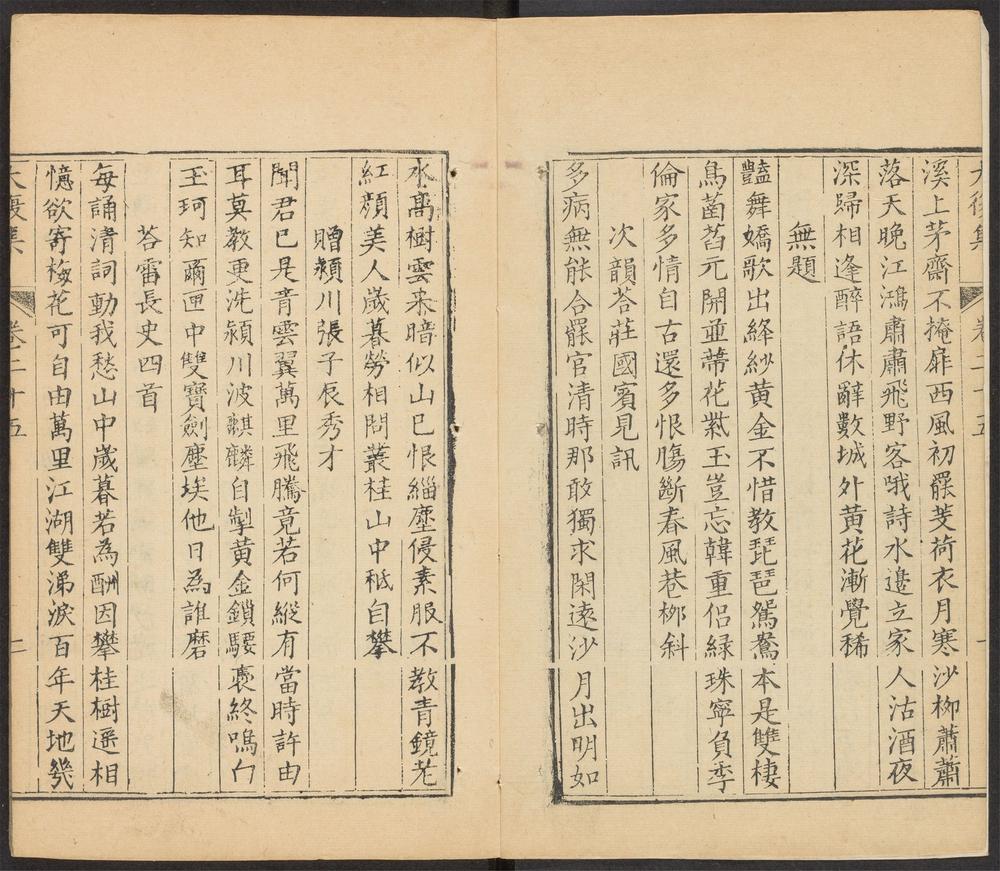 大復集 卷二十五 一
溪上茅齋不掩扉西風初罷芰荷衣月寒沙柳蕭蕭
落天晚江鴻肅肅飛野客哦詩水邊立家人沽酒夜
深歸相逢醉語休辭數城外黃花漸覺稀
無題
豔舞嬌歌出絳紗黃金不惜教琵琶鴛鴦本是雙棲
鳥菡萏元開並蔕花紫玉豈忘韓重侶綠珠寧負季
倫家多情自古還多恨腸斷春風巷柳斜
次韻荅莊國賓見訊
多病無能合罷官清時那敢獨求閑遠沙月出明如
水高樹雲來暗似山已恨緇塵侵素服不教青鏡老
紅顏美人歲暮勞相問叢桂山中秪自攀
贈潁川張子辰秀才
聞君已是青雲翼萬里飛騰竟若何縱有當時許由
耳莫教更洗潁川波麒麟自掣黃金鎖騕褭終鳴白
玉珂知爾匣中雙寶劍塵埃他日為誰磨
荅雷長史四首
每誦清詞動我愁山中歲暮若為酬因攀桂樹遥相
憶欲寄梅花可自由萬里江湖雙涕淚百年天地幾
大復集 卷二十五 二